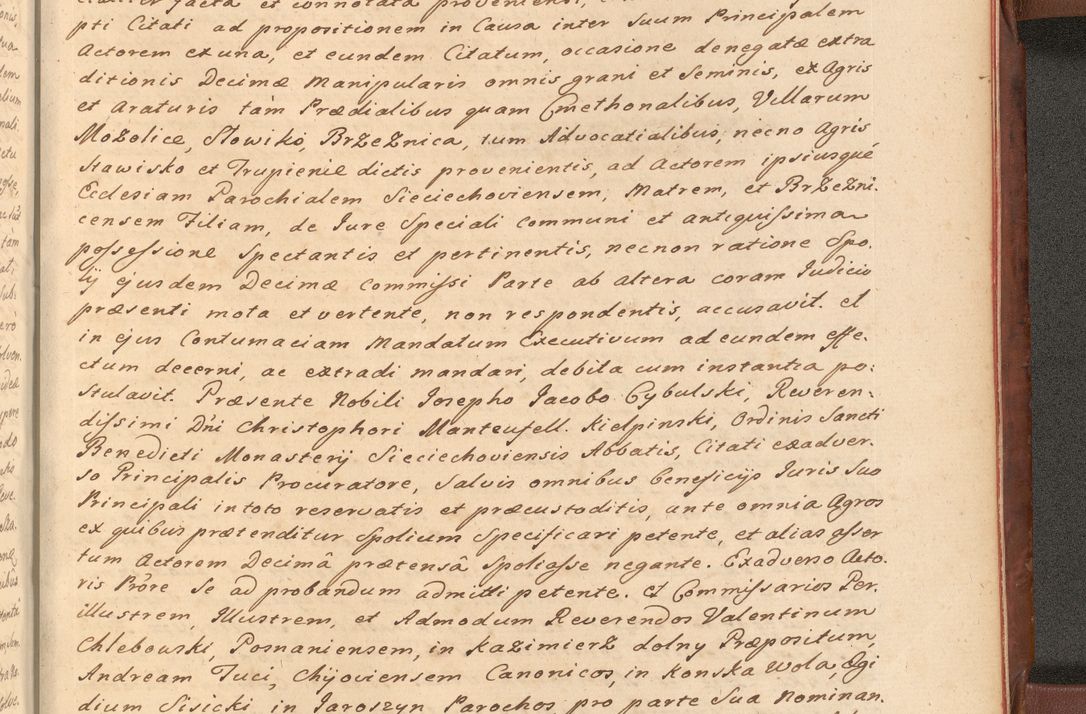 pti Citati ad propositionem in Causa inter Suum Principalem
Actorem ex una, et eundem Citatum, occasione denegatæ extra
ditionis Decimæ Manipularis omnis grani et Seminis, ex Agris
et Araturis tàm Prædialibus quam Cmethonalibus, Villarum
Mozolice, Słowiki, BrZeZnica, tum Advocatialibus, necno Agris
Stawisko et Trupienie dictis provenientis, ad Actorem ipsiusqué
Ecclesiam Parochialem Sieciechoviensem, Matrem, et BrZeZni.
censem Filiam, de Jure Speciali Communi et antiquissima
possessione Spectantis et pertinentis, necnon ratione Spo.
lij ejusdem Decimæ Commissi Parte ab altera coram Judicio
præsenti mota et vertente, non respondentis, accusavit. et
in ejus Contumaciam Mandatum Executivum ad eundem effe.
ctum decerni, ac extradi mandari, debita cum instantia po:
stulavit. Præsente Nobili Josepho Jacobo Cybulski, Reveren-
dissimi Dni Christophori Manteufell. Kielpinski, Ordinis Sancti
Benedicti Monasterij Sieciechoviensis Abbatis, Citati exadver.
so Principalis Procuratore, Salvis omnibus beneficijs Juris Suo
Principali in toto reservatis et præcustoditis, ante omnia Agros
ex quibus prætenditur Spolium Specificari petente, et alias asser
tum Actorem Decimâ prætensâ Spoliasse negante. Exadverso Acto.
ris Prõre Se ad probandum admitti petente. Et Commissarios Per.
illustrem, Illustrem, et Admodum Reverendos Valentinum
Chlebowski, Posnaniensem, in KaZimierZ dolny Præpositum,
Andream Tuci, Chijoviensem Canonicos, in Konska Wola, Ægi
dium Sisicki in Jaroszyn Parochos, pro parte Sua Nominan.